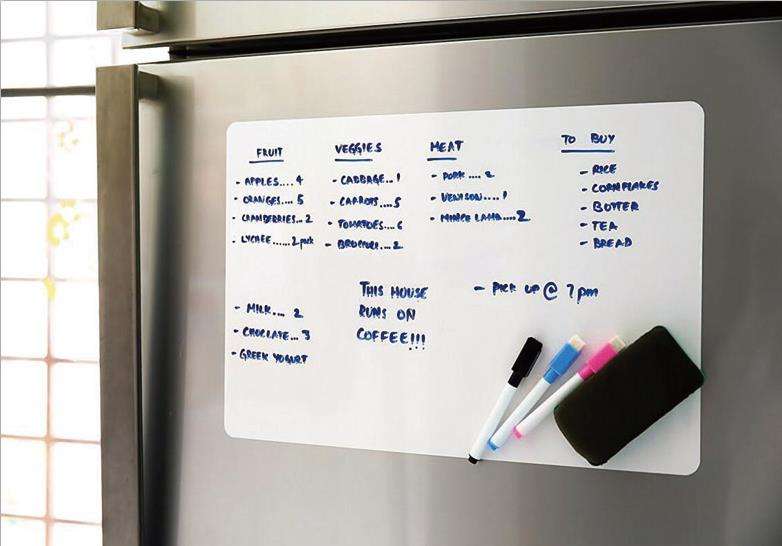 FRUIT
- APPLES.... 4
- ORANGES.... 5
- CRANBERRIES... 2
- LYCHEE...... 2 pack
VEGGIES
- CABBAGE... 1
- CARROTS.... 5
- TOMATOES.... 6
- BROCCOLI... 2
MEAT
- PORK .... 2
- VENISON.... 1
- MINCE LAMB.... 2
TO BUY
- RICE
- CORNFLAKES
- BUTTER
- TEA
- BREAD
- MILK.... 2
- CHOCLATE... 3
- GREEK YOGURT
THIS HOUSE
RUNS ON
COFFEE!!!
- PICK UP @ 7 pm